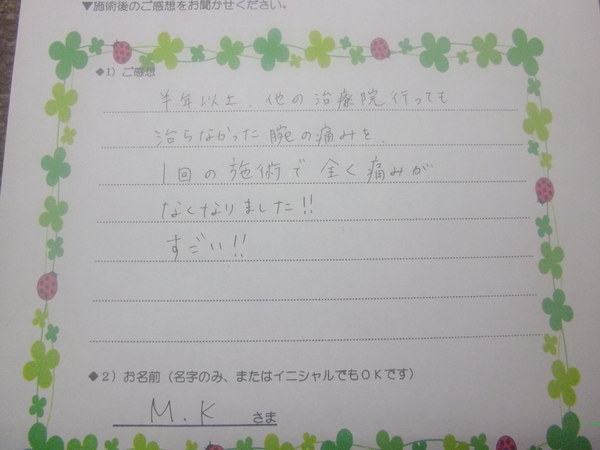 ▼施術後のご感想をお聞かせください。
◆1）ご感想
半年以上、他の治療院行っても
治らなかった腕の痛みを、
1回の施術で全く痛みが
なくなりました!!
すごい!!
◆2）お名前（名字のみ、またはイニシャルでもOKです）
M.K さま